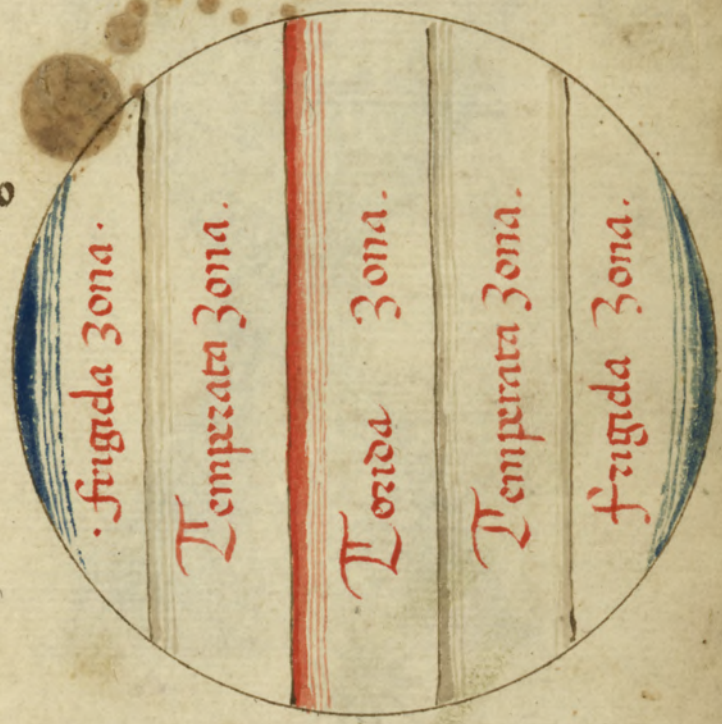 ·frigida zona·
Temperata zona.
Torida zona.
Temperata zona.
frigida zona.